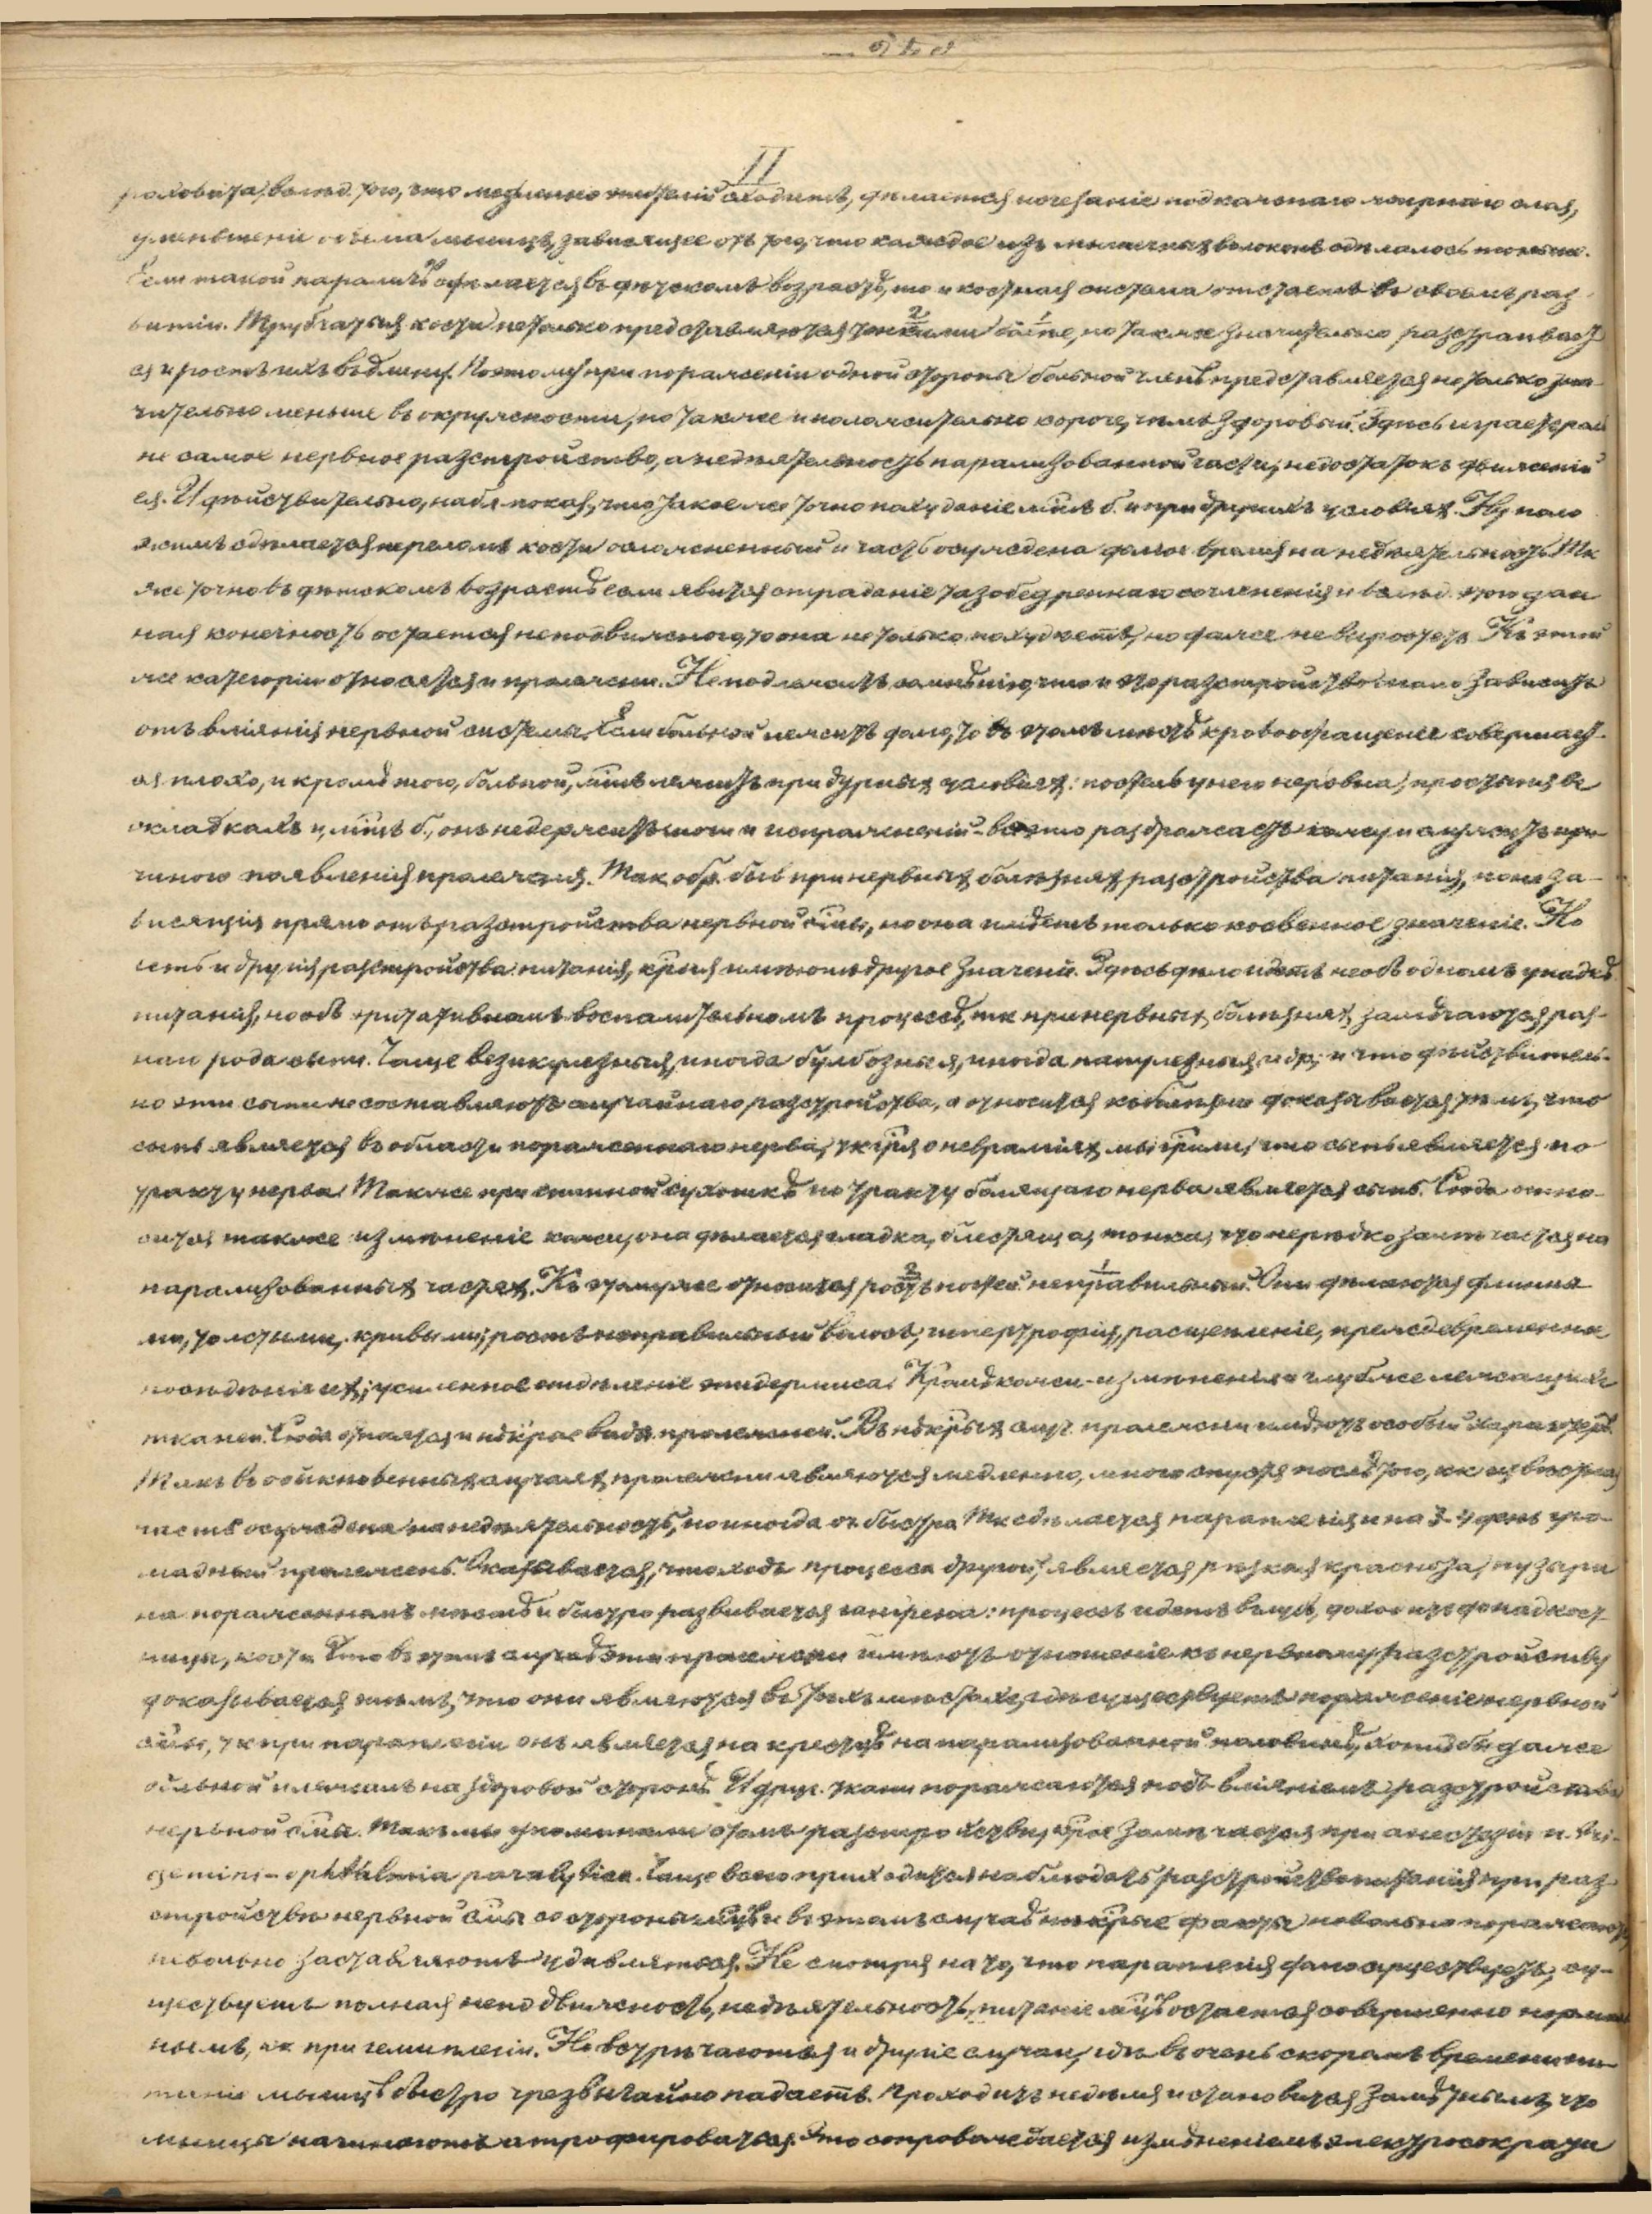 11
вслѣд. того, что медленно эпителій сходитъ, дѣлается исчезаніе подкожнаго жирнаго слоя,
уменьшеніе объема мышцъ, зависящее отъ того, что каждое изъ мышечныхъ волоконъ сдѣлалось тоньше.
Если такой параличъ дѣлается въ дѣтскомъ возрастѣ, то и костная система отстаетъ въ своемъ раз-
витіи. Трубчатыя кости не только представляются тонкими болѣе, но также значительно разстраивает
ся и ростъ ихъ въ длину. Поэтому при пораженіи одной стороны больной членъ представляется не только зна-
чительно меньше въ окружности, но также и положительно короче, чѣмъ здоровый. Здѣсь играетъ роль
не самое нервное разстройство, а недѣятельность парализованной части, недостатокъ движеній
ея. И дѣйствительно, набл. показ., что такое же точно похуданіе б. и при другихъ условіяхъ. Ну поло
жимъ сдѣлается переломъ кости осложненный и часть осуждена долгое время на недѣятельность. Тк
же точно въ дѣтскомъ возрастѣ если явится страданіе тазобедреннаго сочлененія и вслѣд. этого дан
ная конечность остается неподвижною, то она не только похудѣетъ, но даже не вырастетъ. Къ этой
же категоріи относятся и пролежни. Не подлежитъ сомнѣнію, что и это разстройство мало зависитъ
отъ вліянія нервной системы. Если больной лежитъ долго, то въ этомъ мѣстѣ кровообращеніе совершает-
ся плохо, и кромѣ того, больной, лежитъ при дурныхъ условіяхъ: постель у него неровна, простыня въ
складкахъ и, б., онъ недержитъ мочи и испражненій - все это раздражаетъ кожу и служитъ при-
чиною появленія пролежня. Так. обр. быв. при нервныхъ болѣзняхъ разстройства питанія, но не за-
висящія прямо отъ разстройства нервной сист., но она имѣетъ только косвенное значеніе. Но
есть и другія разстройства питанія, крыя имѣютъ другое значеніе. Здѣсь дѣло идетъ не объ одномъ упадкѣ
питанія, но объ ирритативномъ воспалительномъ процессѣ, тк при нервныхъ болѣзняхъ замѣчаются раз-
наго рода сыпи. Чаще везикулезныя, иногда булбозныя, иногда папулезныя и др.; и что дѣйствитель-
но эти сыпи не составляютъ случайнаго разстройства, а относятся къ болѣзни доказывается тѣмъ, что
сыпь является въ области пораженнаго нерва, о невралгіяхъ мы что сыпь является по
тракту нерва. Также при спинной сухоткѣ по тракту болящаго нерва является сыпь. Сюда отно-
сится также измѣненіе кожи, она дѣлается гладка, блестяща, тонка, что нерѣдко замѣчается на
парализованныхъ частяхъ. Къ этому же относится ростъ ногтей неправильный. Они дѣлаются длинны
ми, толстыми, кривыми; ростъ неправильный волосъ, гипертрофія, расщепленіе, преждевременное
посѣдѣніе ихъ; усиленное отдѣленіе эпидермиса. Кромѣ кожи - измѣненія и глубже лежащихъ
тканей. Сюда относятся и нѣкрое видъ пролежней. Въ нѣкрыхъ случ. пролежни имѣютъ особый характеръ.
Такъ въ обыкновенныхъ случаяхъ пролежни являются медленно, много спустя послѣ того, кк извѣстная
часть осуждена на недѣятельность, но иногда оч. быстро. Тк сдѣлается параплегія и на 3-4 день гро-
мадный пролежень. Оказывается, что ходъ процесса другой, является рѣзкая краснота, пузыри
на пораженномъ мѣстѣ и быстро развивается гангрена: процессъ идетъ вглубь, доходитъ до надкост-
ницы, кости. Что въ этомъ случаѣ эти пролежни имѣютъ отношеніе къ нервному разстройству
доказывается тѣмъ, что они являются въ тѣхъ мѣстахъ, гдѣ существуетъ пораженіе нервной
сист., тк при параплегіи онъ является на крестцѣ на парализованной половинѣ, хотя бы даже
больной и лежалъ на здоровой сторонѣ. И друг. ткани поражаются подъ вліяніемъ разстройства
нервной сист. Такъ мы упоминали о томъ разстройствѣ, крое замѣчается при анестезіи n. tri-
gemini - ophthalmia paralytica. Чаще всего приходится наблюдать разстройство питанія при раз-
стройствѣ нервной сист. со стороны мышцъ и въ этомъ случаѣ нѣкрые факты невольно поражаютъ,
невольно заставляютъ удивляться. Не смотря на то, что параплегія долго существуетъ, су-
ществуетъ полная неподвижность, недѣятельность, питаніе мцъ остается совершенно нормаль
нымъ, кк при гемиплегіи. Но встрѣчаются и другіе случаи, гдѣ въ очень скоромъ времени пи-
таніе мышцъ быстро чрезвычайно падаетъ. Проходитъ недѣля и становится замѣтнымъ, что
мышцы начинаютъ атрофироваться. Это сопровождается измѣненіемъ электросократи